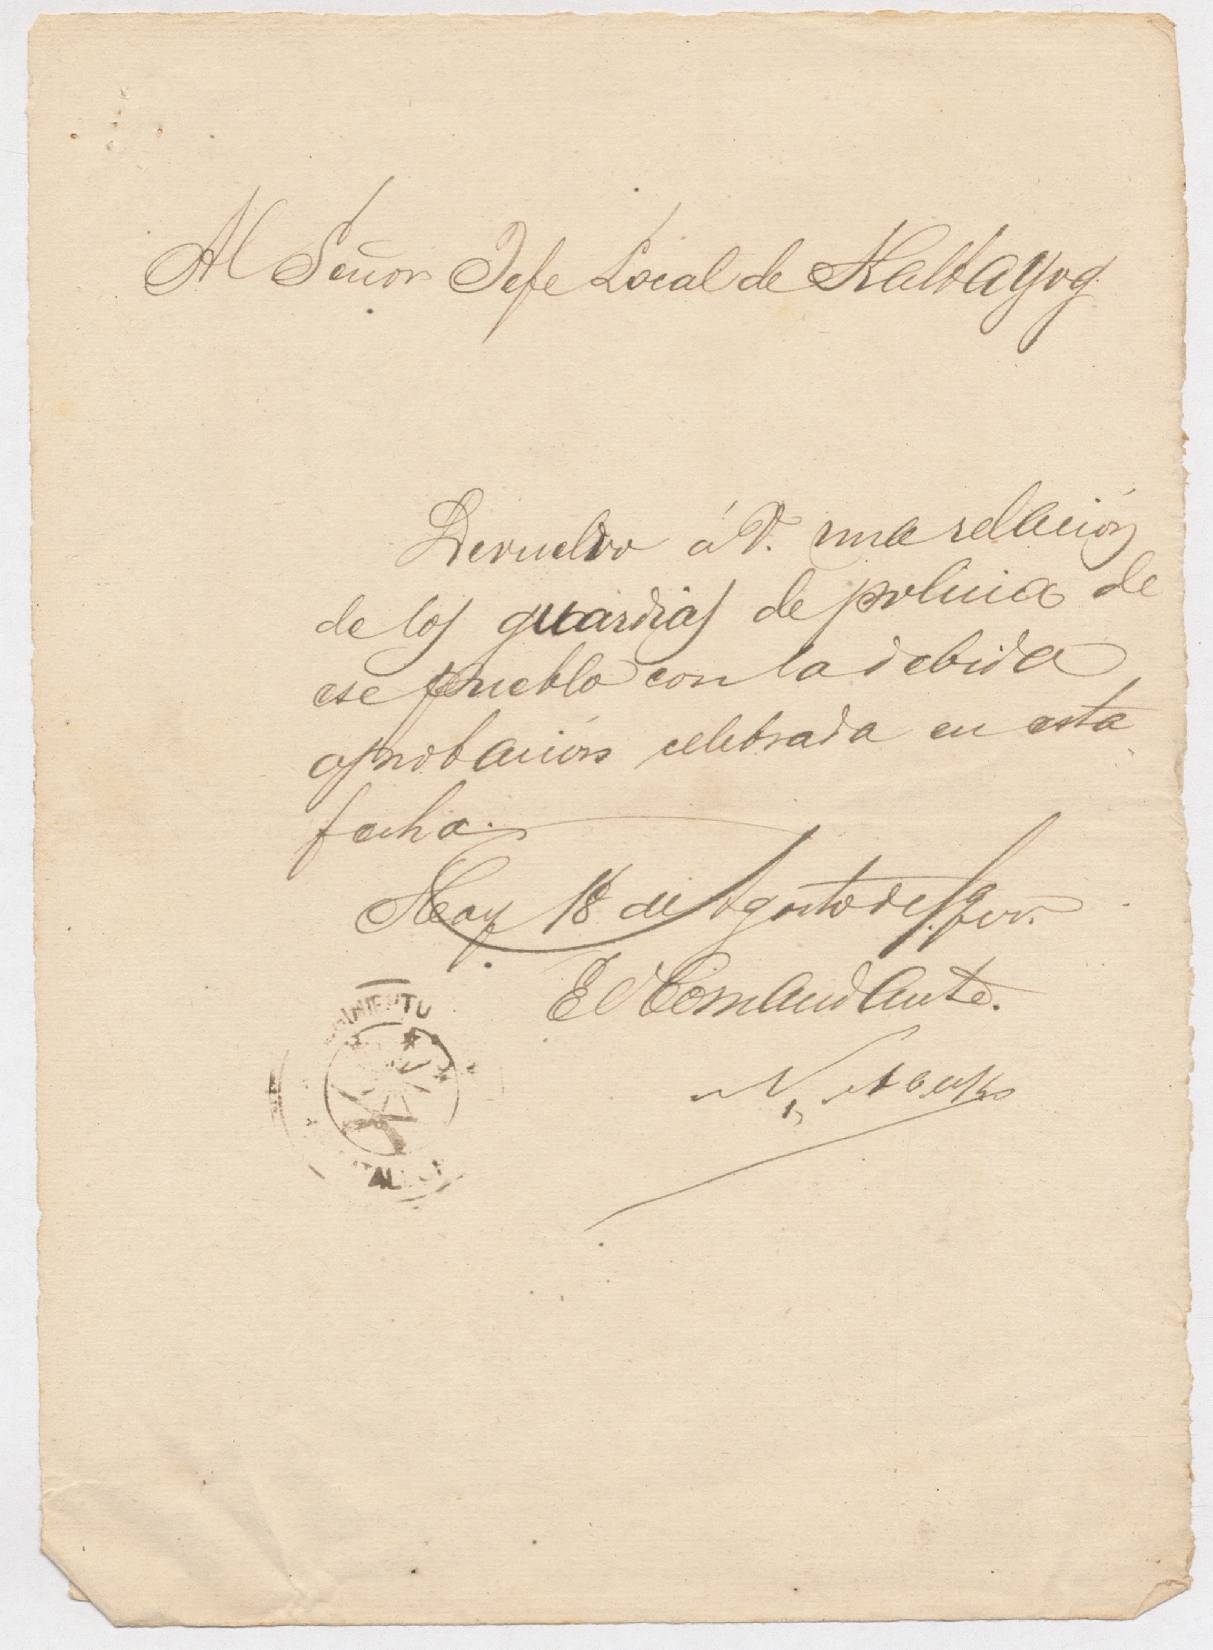 Al Señor Jefe Local de Kalbayog.
Devuelvo á V. una relación
de los guardias de policia de
ese pueblo con la debida
aprobación celebrada en esta
fecha.
18 de Agosto de
El Comandante.
N.